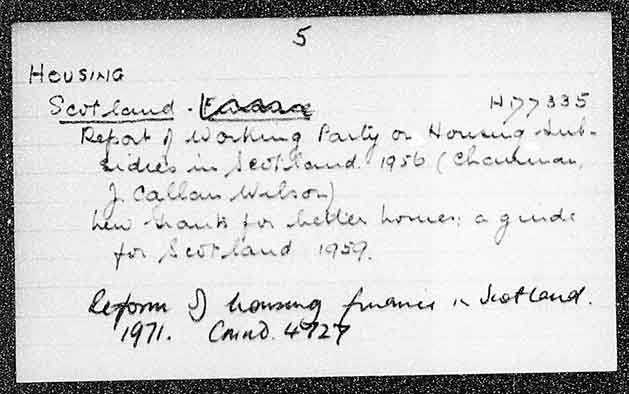 5
HOUSING
Scotland. H177335
Report of Working Party on Housing Sub-
sidies in Scotland. 1956 (Chairman,
J. Callan Wilson)
New grants for better homes: a guide
for Scotland 1959.
Reform of housing finance in Scotland.
1971. Cmnd. 4727